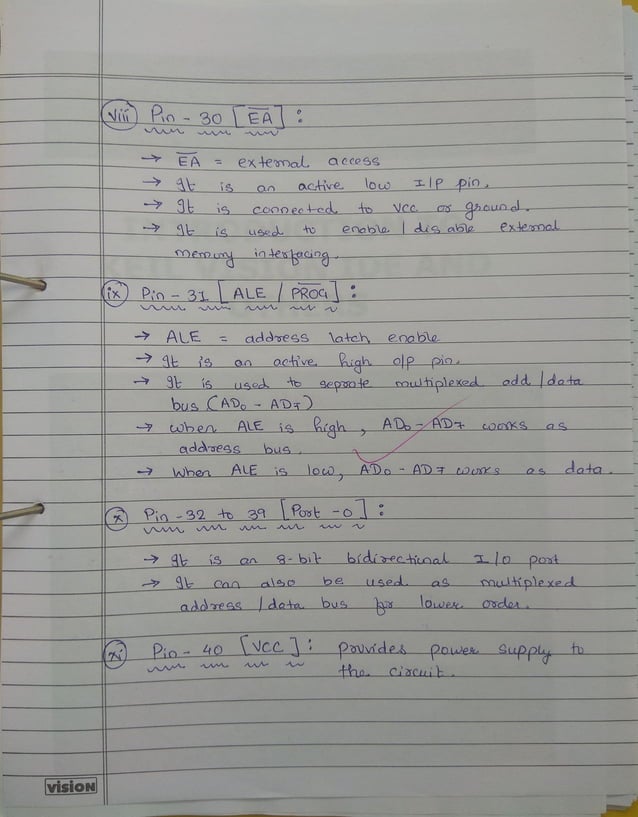 viii Pin - 30 [E̅A̅] :
→ E̅A̅ = external access
→ It is an active low I/P pin.
→ It is connected to vcc or ground.
→ It is used to enable / disable external
memory interfacing.
ix Pin - 31 [ALE / P̅R̅O̅G̅] :
→ ALE = address latch enable
→ It is an active high o/p pin.
→ It is used to seprate multiplexed add / data
bus (AD0 - AD7)
→ when ALE is high, AD0 - AD7 works as
address bus.
→ When ALE is low, AD0 - AD7 works as data.
x Pin - 32 to 39 [Port - 0] :
→ It is an 8-bit bidirectional I/O port
→ It can also be used as multiplexed
address / data bus for lower order.
xi Pin - 40 [VCC] : provides power supply to
the circuit.
vision